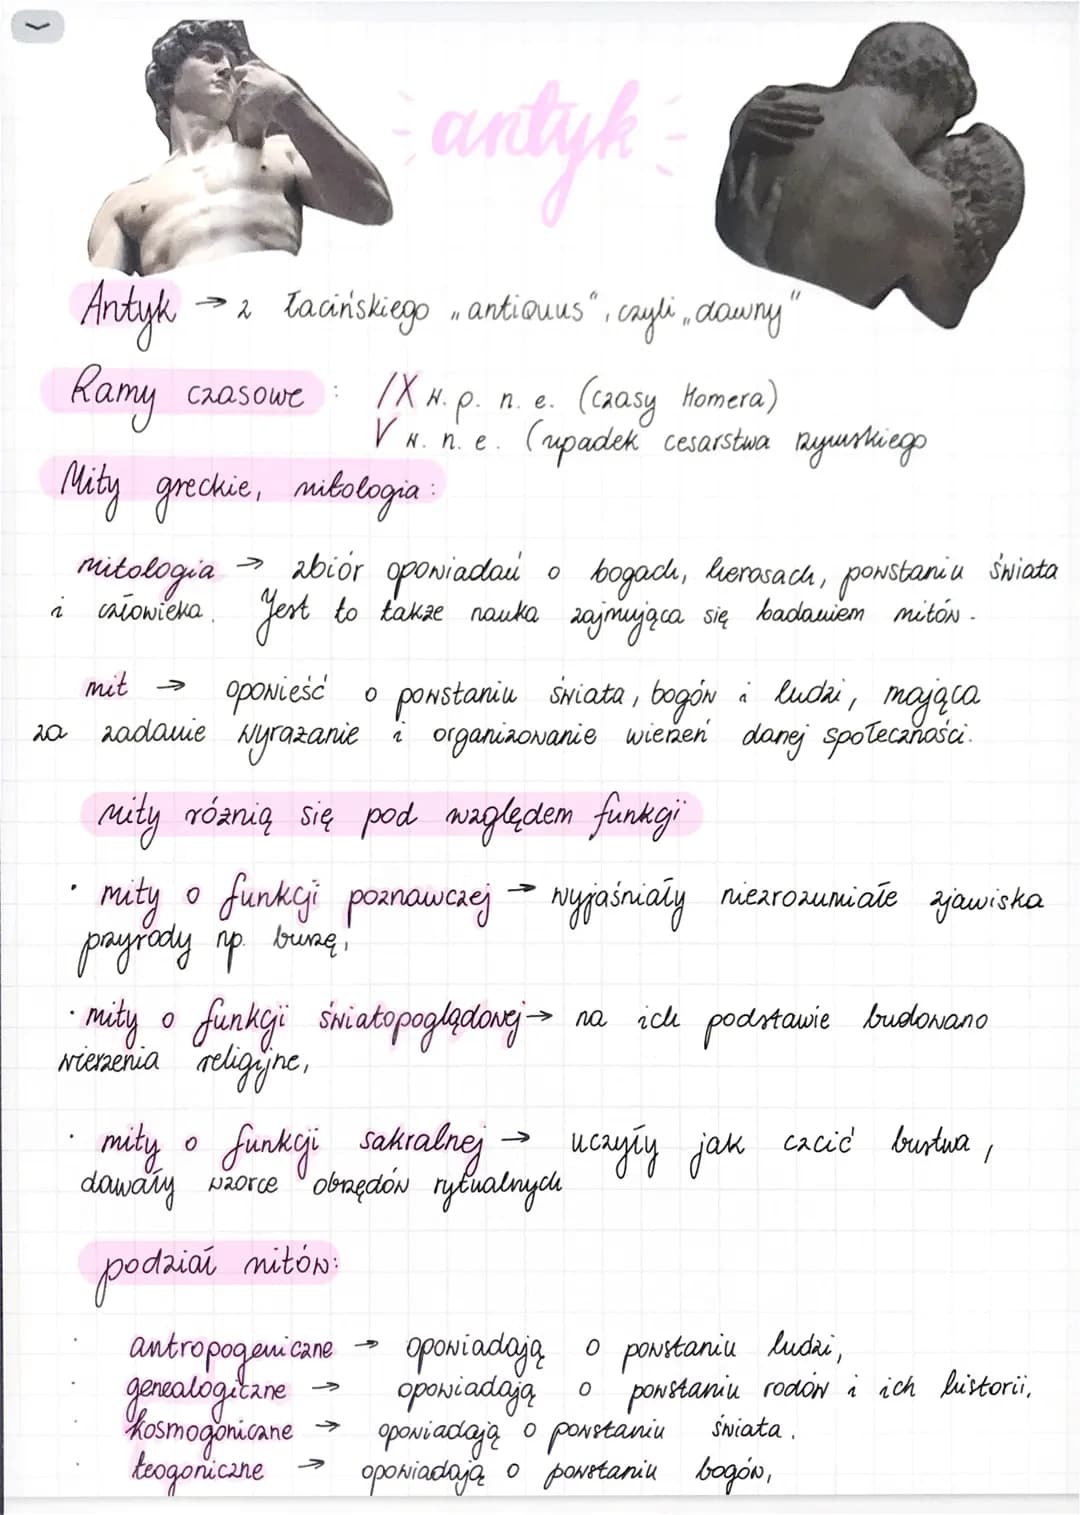 antyk
Antyk → z łacińskiego „antiquus", czyli „dawny"
Ramy czasowe : IX w. p. n. e. (czasy Homera)
V w. n. e. (upadek cesarstwa rzymskiego
Mity greckie, mitologia:
mitologia → zbiór opowiadań o bogach, herosach, powstaniu świata
i człowieka. Jest to także nauka zajmująca się badaniem mitów.
mit → opowieść o powstaniu świata, bogów i ludzi, mająca
za zadanie wyrażanie i organizowanie wierzeń danej społeczności.
mity różnią się pod względem funkcji
· mity o funkcji poznawczej → wyjaśniały niezrozumiałe zjawiska
przyrody np. burzę,
· mity o funkcji światopoglądowej → na ich podstawie budowano
wierzenia religijne,
· mity o funkcji sakralnej → uczyły jak czcić bustwa,
dawały wzorce obrzędów rytualnych
podział mitów:
· antropogeniczne → opowiadają o powstaniu ludzi,
· genealogiczne → opowiadają o powstaniu rodów i ich historii,
· kosmogoniczne → opowiadają o powstaniu świata.
· teogoniczne → opowiadają o powstaniu bogów,